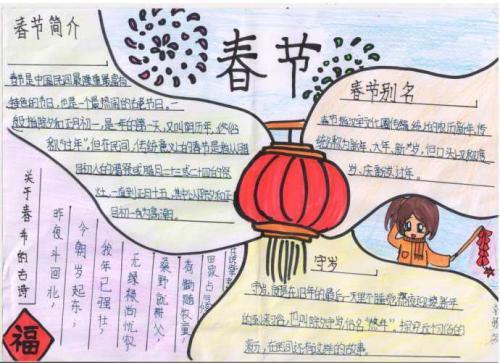 春节
春节简介
春节是中国民间最隆重最富有
特色的节日，也是一个最热闹的古老节日，一
般指除夕和正月初一，是一年的第一天，又叫阴历年，俗称
"过年"。但在民间，传统意义上的春节是指从腊
月初八的腊祭或腊月二十三或二十四的祭
灶，一直到正月十五，其中以除夕和正
月初一为高潮。
春节别名
春节指汉字文化圈传统上的农历新年，传
统名称为新年、大年、新岁，但口头上又称度
岁、庆新岁、过年。
关于春节的古诗
昨夜斗回北，
今朝岁起东；
我年已强壮，
无禄尚忧农。
桑野就耕父，
荷锄随牧童；
田家占气候，
守岁
守岁，就是在旧年的最后一天里不睡觉，熬夜迎接新年
的到来的习俗，也叫除夕守岁，俗名"熬年"。探究这个习俗的
来历，在民间还有这样的故事
福